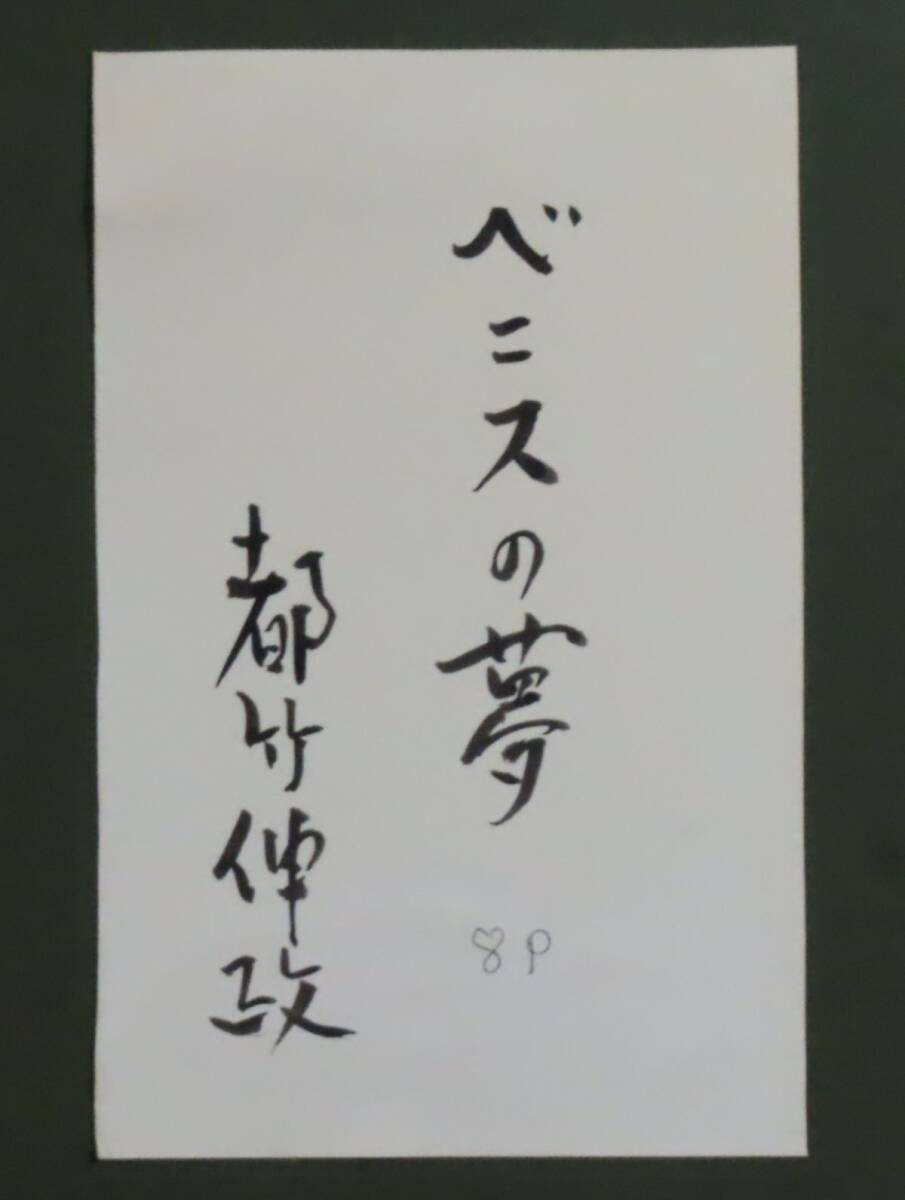 ベニスの夢
8P
都竹伸政